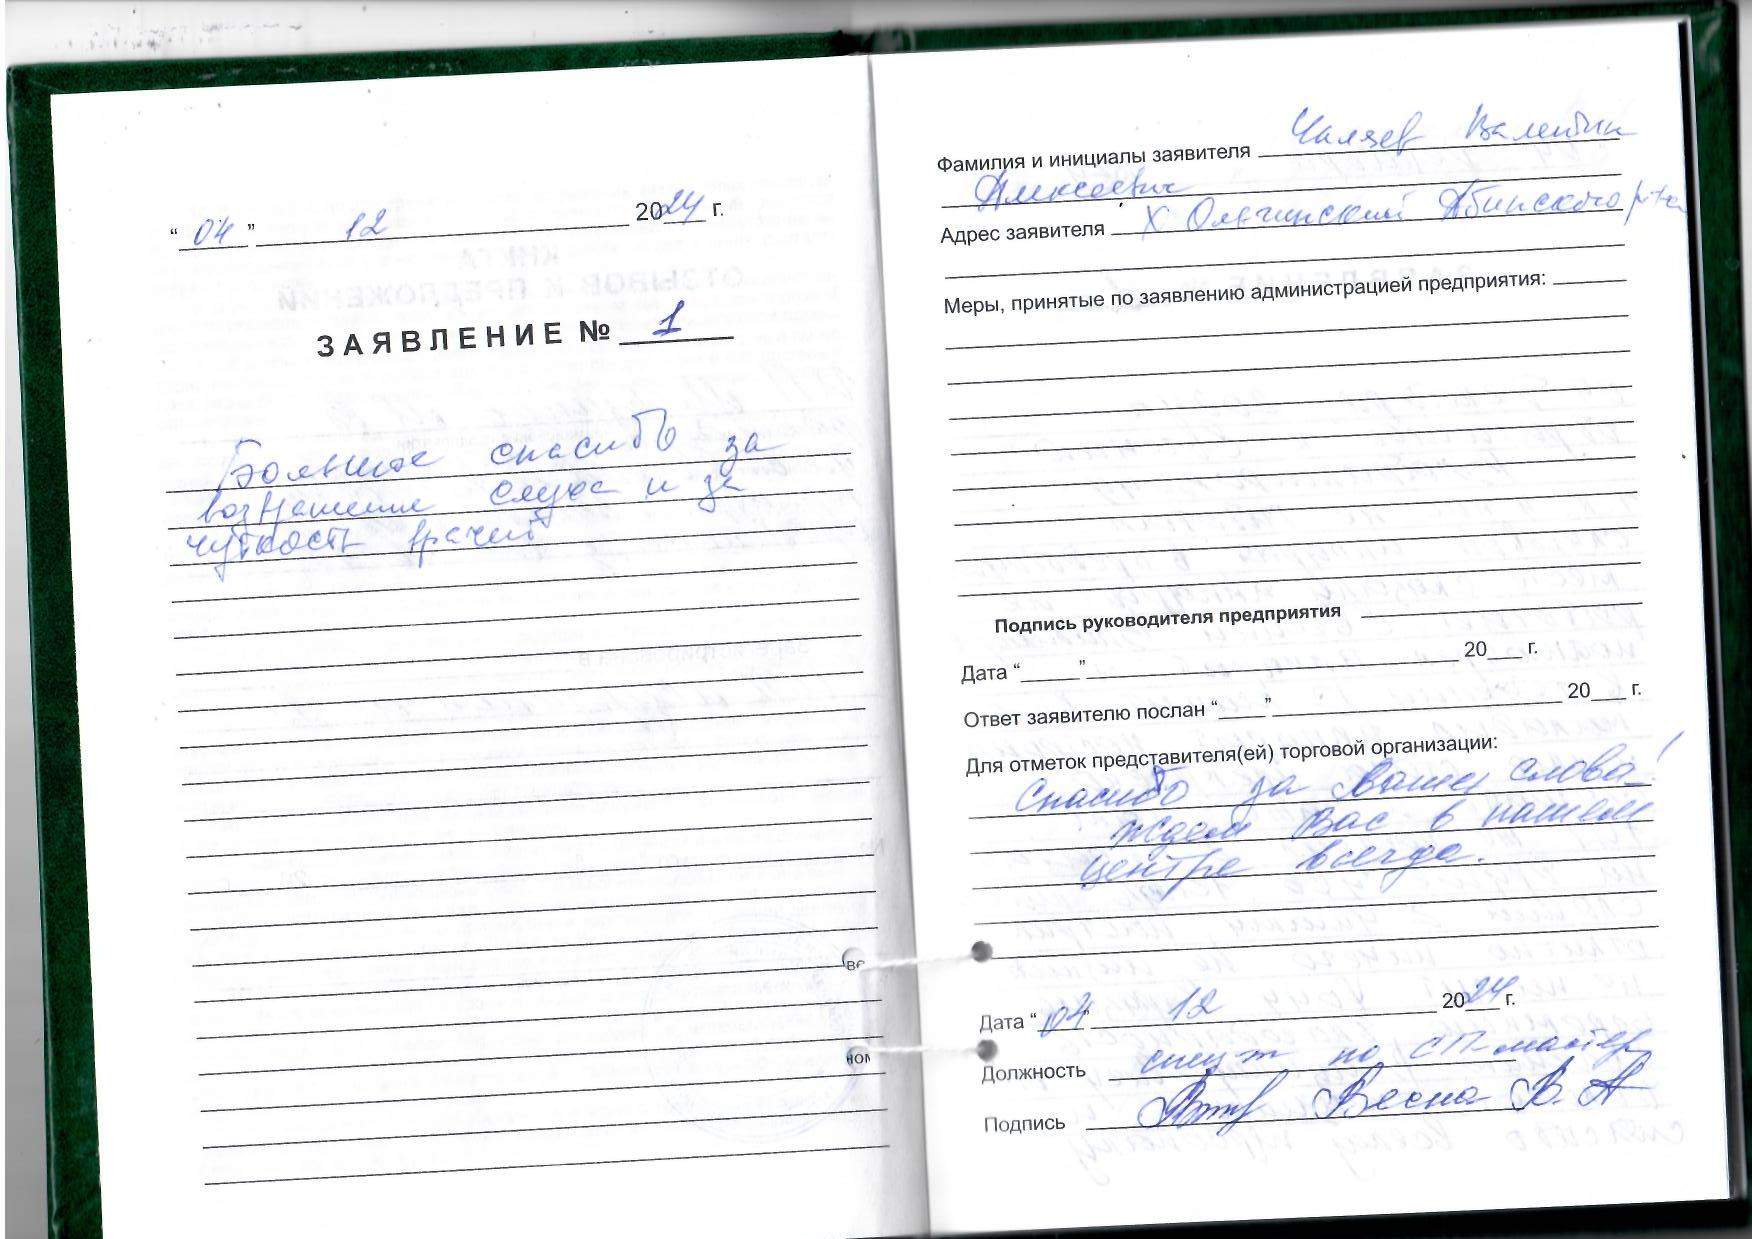 “ 04 ” 12 2024 г.
ЗАЯВЛЕНИЕ № 1
Большое спасибо за
возвращение слуха и за
чуткость врачей
Фамилия и инициалы заявителя Валентин
Алексеевич
Адрес заявителя х Ольгинский Абинского р-на
Меры, принятые по заявлению администрацией предприятия:
Подпись руководителя предприятия
Дата “ ” 20 г.
Ответ заявителю послан “ ” 20 г.
Для отметок представителя(ей) торговой организации:
Спасибо за Ваши слова!
Ждем Вас в нашем
центре всегда.
Дата “ 04 ” 12 2024 г.
Должность по СП-мастер
Подпись Весна В. А